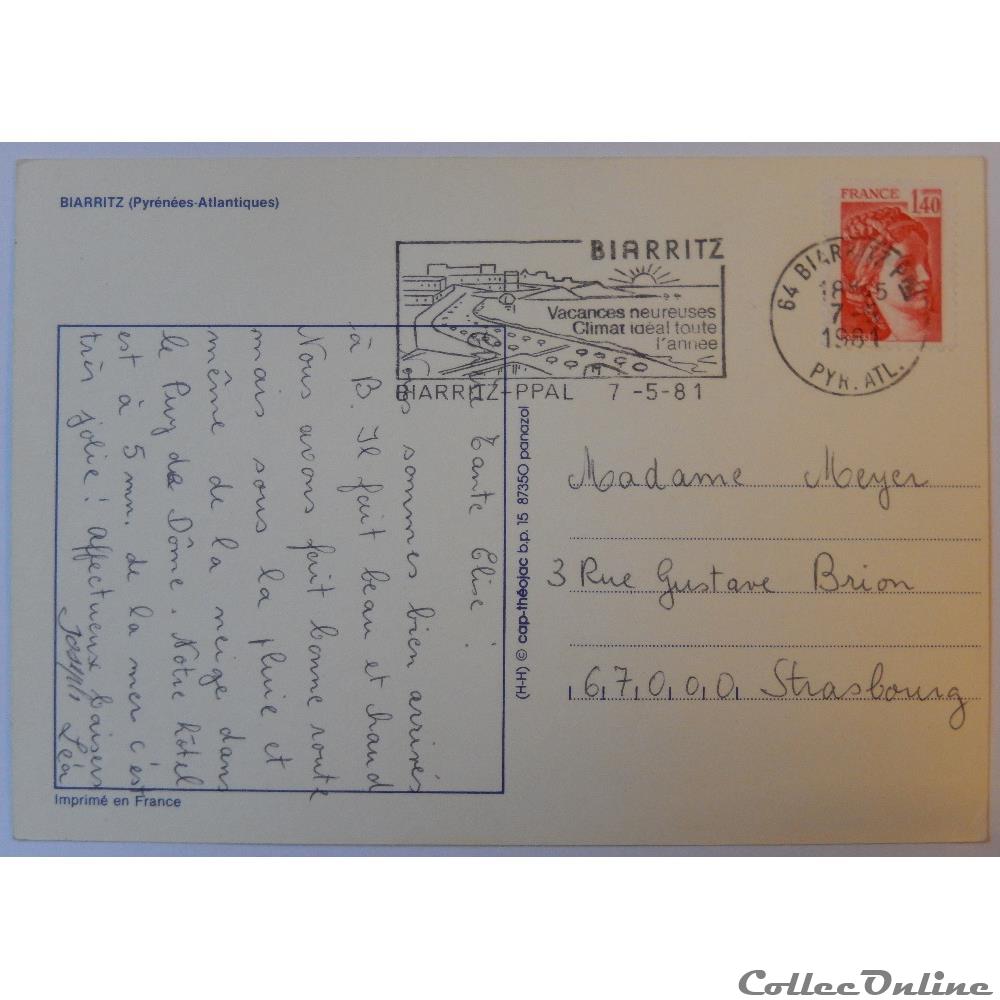 BIARRITZ (Pyrénées-Atlantiques)
BIARRITZ
Vacances heureuses
Climat idéal toute
l'année
BIARRITZ-PPAL 7 -5-81
FRANCE
1,40
64 BIARRITZ
18H15
7
1981
PYR. ATL.
Tante Elise.
sommes bien arrivés
à B. Il fait beau et chaud
Nous avons fait bonne route
mais sous la pluie et
même de la neige dans
le Puy de Dôme. Notre hôtel
est à 5 mn. de la mer c'est
très jolie! Affectueux baisers
Joseph Léa
Imprimé en France
(H-H) © cap-théojac b.p. 15 87350 panazol
Madame Meyer
3 Rue Gustave Brion
67000 Strasbourg
CollecOnline